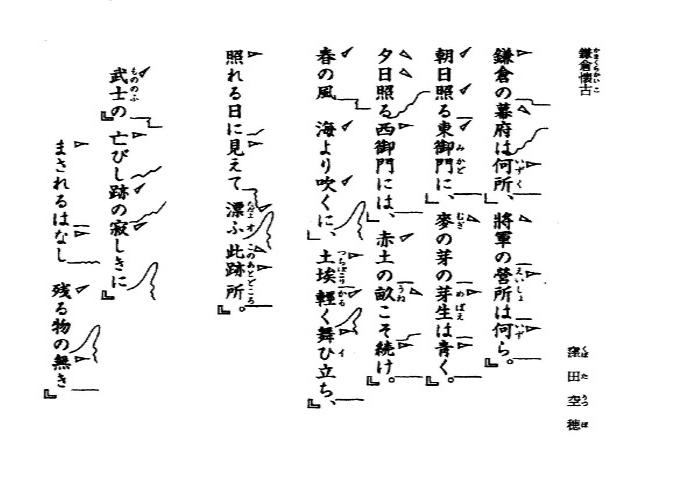 鎌倉懐古
窪田空穂
鎌倉の幕府は何所、將軍の營所は何ら。
朝日照る東御門に、麥の芽の芽生は青く。
夕日照る西御門には、赤土の畝こそ続け。
春の風 海より吹くに、土埃輕く舞ひ立ち、
照れる日に見えて 漂ふ 此跡所。
武士の 亡びし跡の寂しきに
まされるはなし 残る物の無き